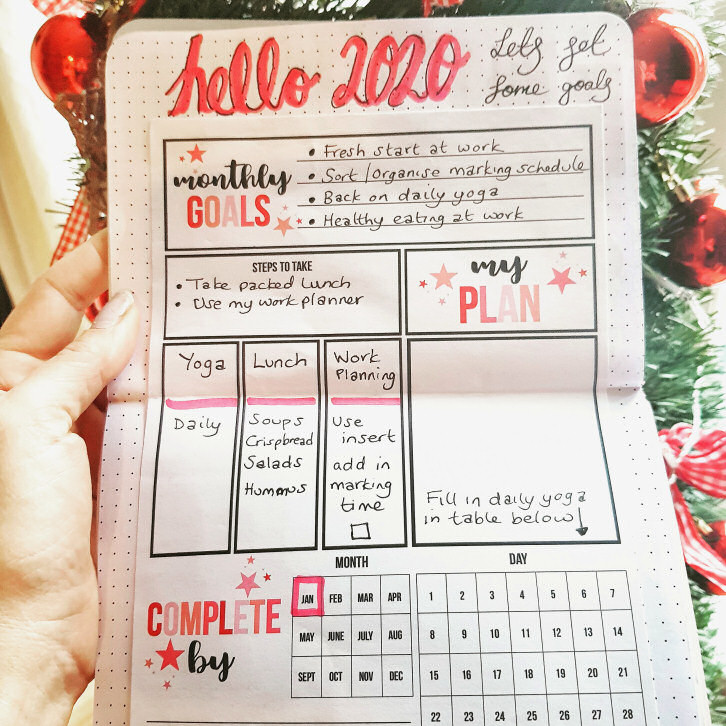 hello 2020
Lets set
some goals
monthly
GOALS
• Fresh start at work
• Sort/organise marking schedule
• Back on daily yoga
• Healthy eating at work
STEPS TO TAKE
• Take packed Lunch
• Use my work planner
my
PLAN
Yoga
Daily
Lunch
Soups
Crispbread
Salads
Humous
Work
Planning
Use
insert
add in
marking
time
Fill in daily yoga
in table below
COMPLETE
by
MONTH
JAN FEB MAR APR
MAY JUNE JULY AUG
SEPT OCT NOV DEC
DAY
1 2 3 4 5 6 7
8 9 10 11 12 13 14
15 16 17 18 19 20 21
22 23 24 25 26 27 28